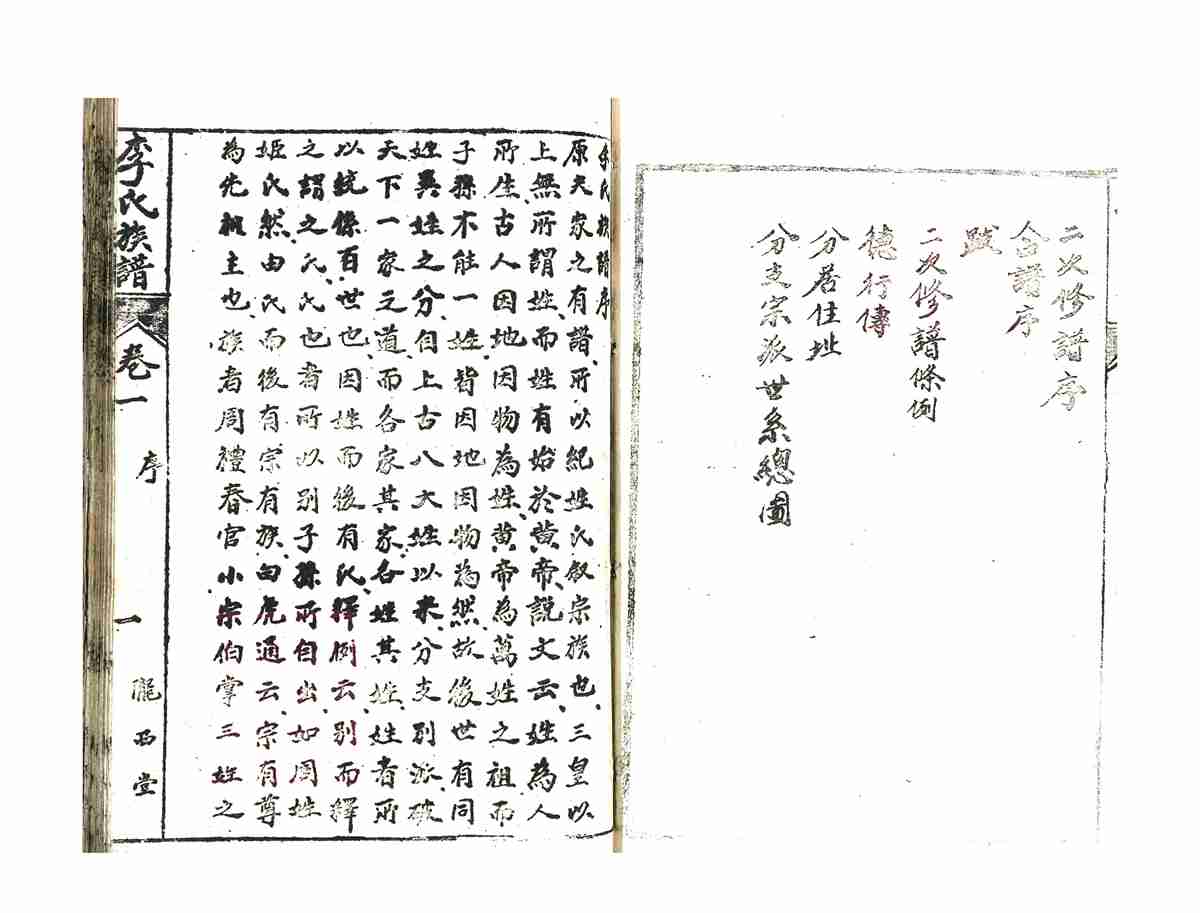 二次修譜序
合譜序
跋
二次修譜條例
德行傳
分居住址
分支宗派世系總圖
李氏族譜序
原夫家之有譜所以紀姓氏敘宗族也三皇以
上無所謂姓而姓有始於黄帝説文云姓為人
所生古人因地因物為姓黄帝為萬姓之祖而
子孫不能一姓皆因地因物為然故後世有同
姓異姓之分自上古八大姓以來分支別派破
天下一家之道而各家其家各姓其姓姓者所
以統係百世也因姓而後有氏釋例云別而釋
之謂之氏氏也者所以別子孫所自出如周姓
姬氏然由氏而後有宗有族白虎通云宗有尊
為先祖主也族者周禮春官小宗伯掌三姓之
李氏族譜
卷一
序
一
隴西堂